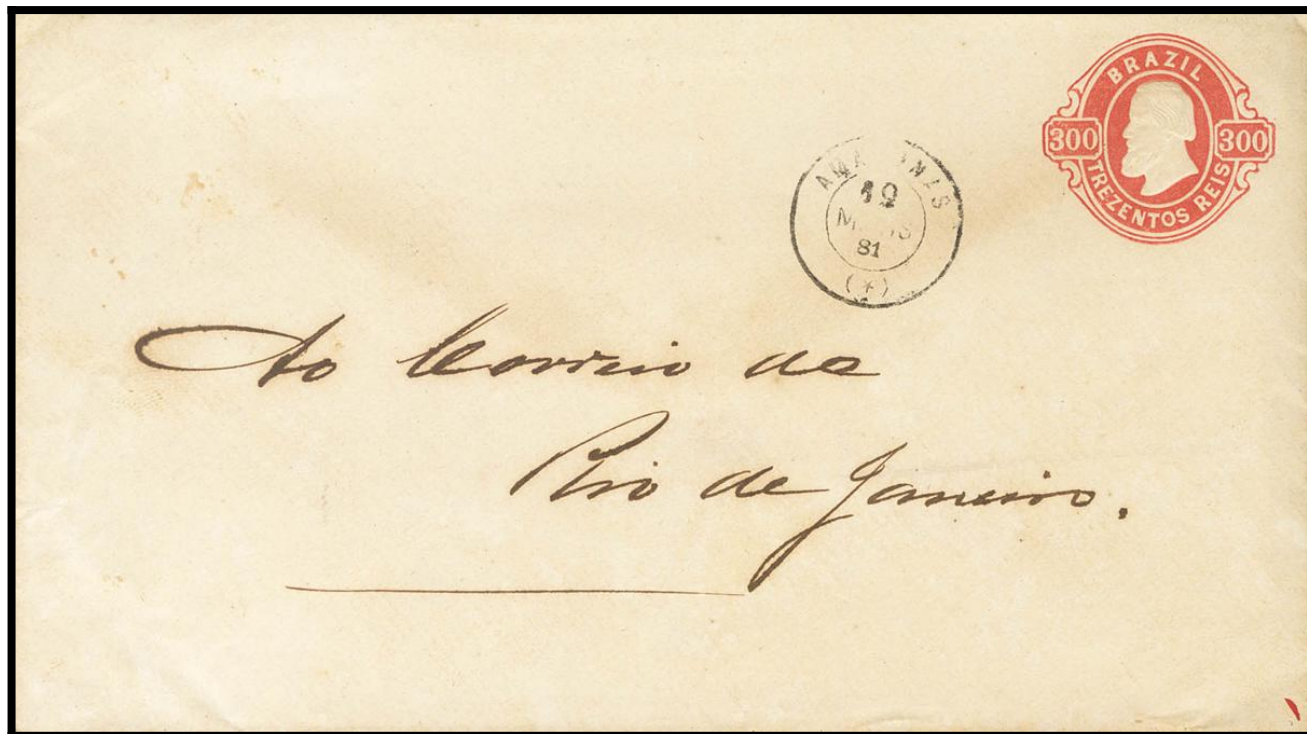 BRAZIL
300 300
TREZENTOS REIS
81
(*)
Ao Correio de
Rio de Janeiro.